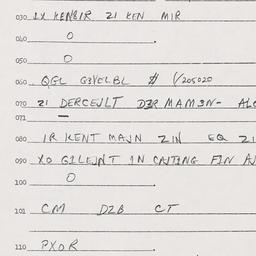 030 1X KENBIR 21 KEN MIR
040 0
050 0
060 QGL G3VELBL $ 1/205020
070 21 DERCEJLT D3R MAMJN- ALC
071 —
080 IR KENT MAJN ZIN EQ 21
090 XO GILEJNT IN CAJTING FIN A
100 0
101 CM DZB CT
110 PXOR